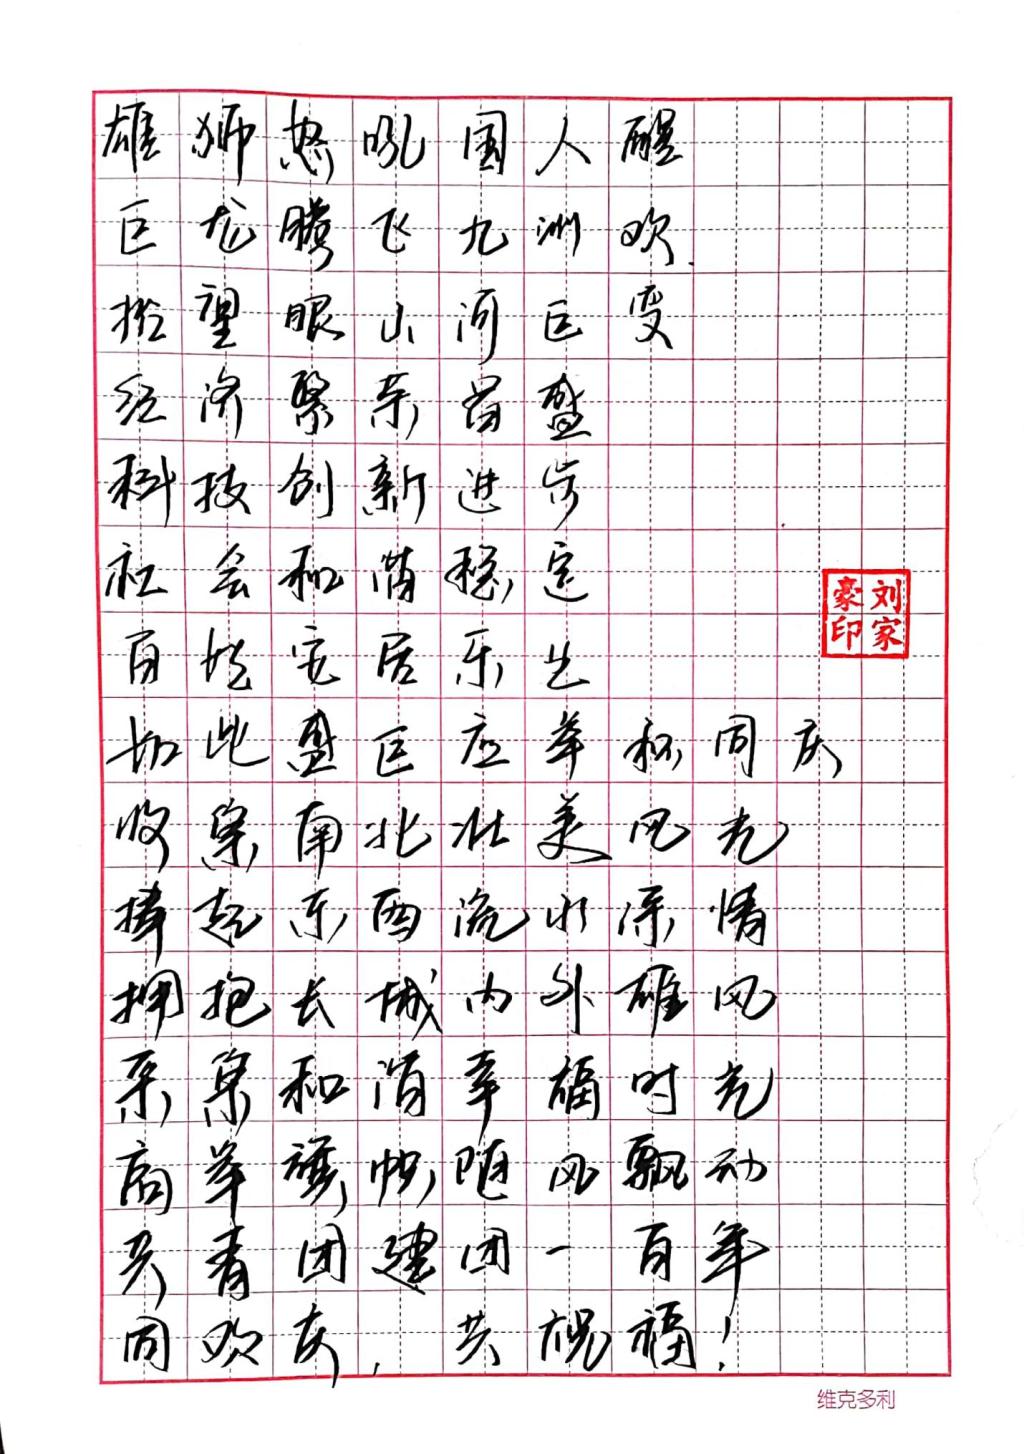 雄狮怒吼国人醒
巨龙腾飞九洲欢
抬望眼山河巨变
经济繁荣昌盛
科技创新进步
社会和谐稳定
百姓安居乐业
如此盛巨应举杯同庆
收集南北壮美风光
捧起东西流水深情
拥抱长城内外雄风
采集和谐幸福时光
高举旗帜随风飘动
共青团建团一百年
同欢庆，共祝福！
刘家豪印
维克多利